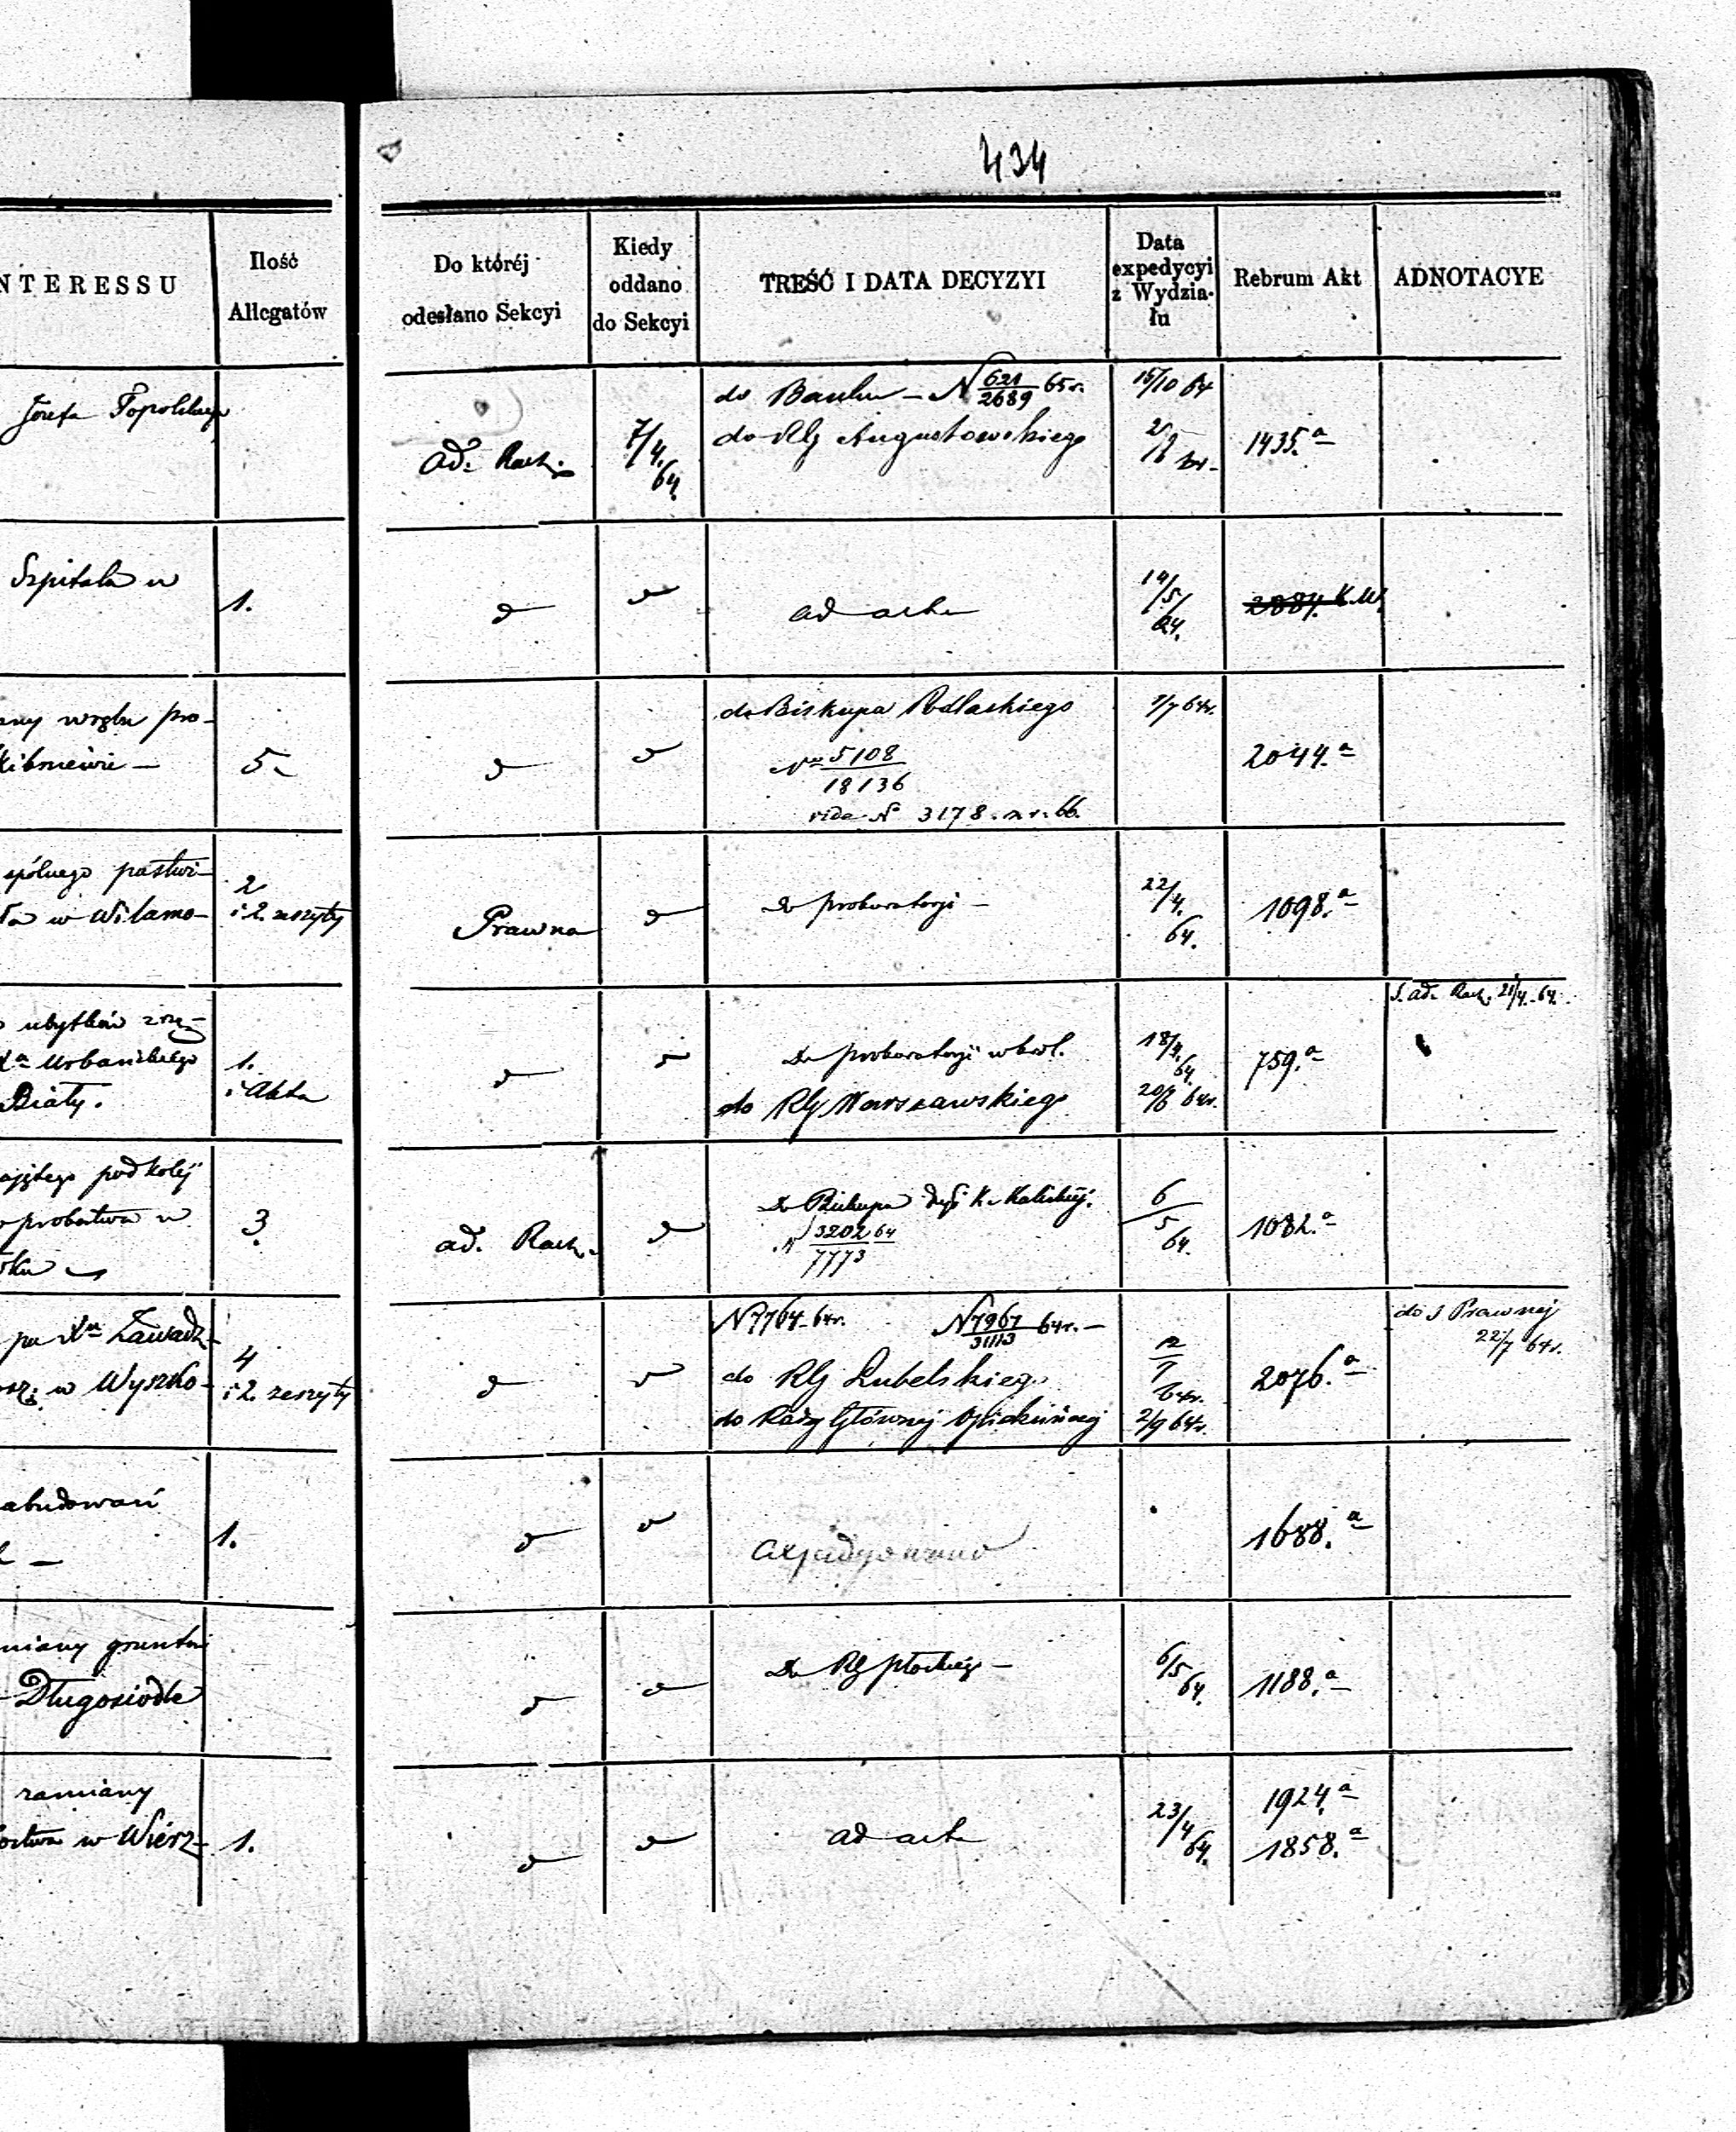 434
NTERESSU
Ilość
Allegatów
Do któréj
odesłano Sekcyi
Kiedy
oddano
do Sekcyi
TREŚĆ I DATA DECYZYI
Data
expedycyi
z Wydzia-
łu
Rebrum Akt
ADNOTACYE
Józefa Topolskiego
ad. Rach.
7/4. 64.
do Banku — N 621/2689 65 r.
do RG Augustowskiego
15/10 64
1435.a
Szpitala w
1.
d
d
ad acta
14/5/64.
2084. K.W.
any wzglu pro-
Kibniewie —
5
d
d
do Biskupa Podlaskiego
No 5108/18136
vide No 3178. z r. 66.
1/7 64 r.
2044.a
spólnego pastwi-
w Wilamo-
2
i 2. zeszyty
Prawna
d
do prokuratoryi —
22/4. 64.
1098.a
ubytków
Xa Urbańskiego
Biały.
1.
i Akta
d
d
do prokuratoryi
do RG Warszawskiego
18/4. 64.
20/6 64 r.
759.a
S. ad. Rach. 21/4. 64.
ajętego pod koléj
probostwa w
3.
ad. Rach.
d
do Biskupa Dyec. K. Kaliskiéj.
N 3202/7773 64
6/5 64.
1082.a
pu Xa Zawadz-
w Wyszko-
4
i 2. zeszyty
d
d
N 7764 64 r. N 7967/31113 64 r. —
do RG Lubelskiego
do Rady Głównej Opiekuńczej
12/7 64r.
2/9 64 r.
2076.a
do S Prawnej
22/7 64 r.
abudowań
1.
d
d
1688.a
miany gruntów
Długosiodle
d
d
do RG Płockiego —
6/5 64.
1188.a
zamiany
w Wierz-
1.
d
d
ad acta
23/4 64.
1924.a
1858.a